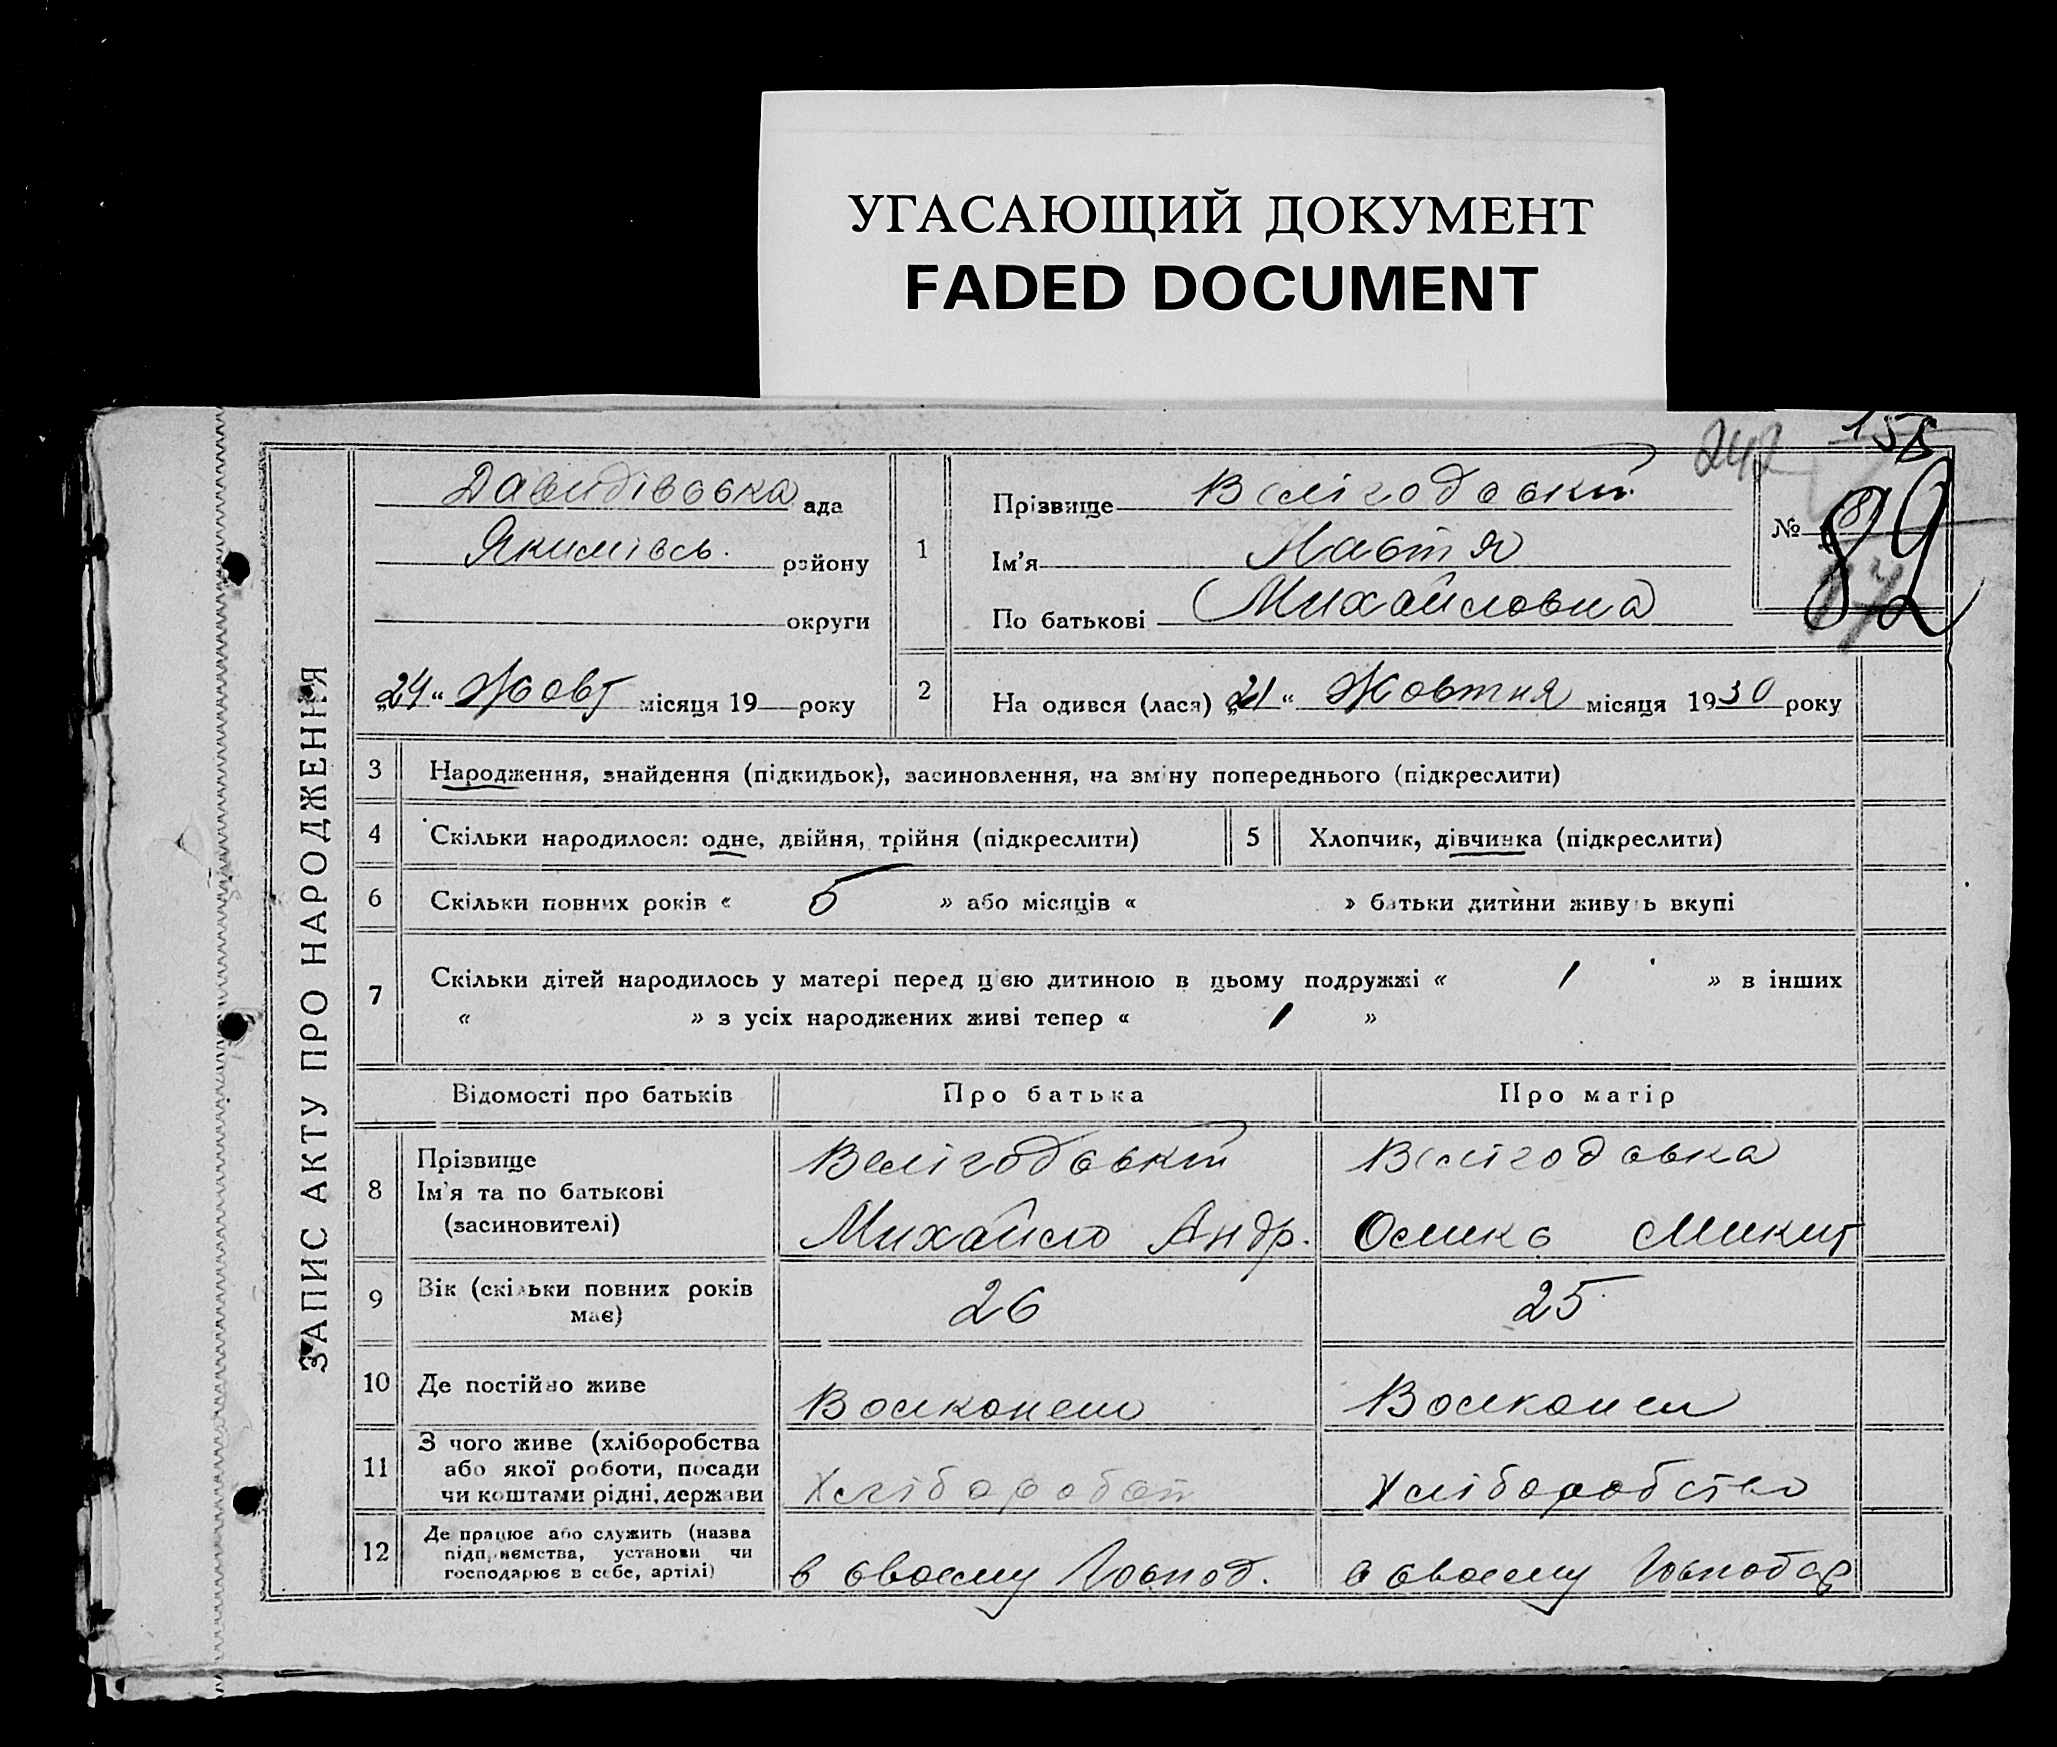 УГАСАЮЩИЙ ДОКУМЕНТ
FADED DOCUMENT
242 158
ЗАПИС АКТУ ПРО НАРОДЖЕННЯ
Давидівська ада
Якимівсь. району
округи
„24“ Жовт місяця 19 року
1
Прізвище Велігодський
Ім'я Настя
По батькові Михайловна
№ 82
2 На одився (лася) „21“ Жовтня місяця 1930 року
3 Народження, знайдення (підкидьок), засиновлення, на зміну попереднього (підкреслити)
4 Скільки народилося: одне, двійня, трійня (підкреслити)
5 Хлопчик, дівчинка (підкреслити)
6 Скільки повних років « 5 » або місяців « » батьки дитини живуть вкупі
7 Скільки дітей народилось у матері перед цією дитиною в цьому подружжі « 1 » в інших
« » з усіх народжених живі тепер « 1 »
Відомості про батьків Про батька Про матір
8 Прізвище
Ім'я та по батькові
(засиновителі)
Велігодський
Михайло Андр.
Велігодська
Микит
9 Вік (скільки повних років
має)
26 25
10 Де постійно живе
11 З чого живе (хліборобства
або якої роботи, посади
чи коштами рідні, держави
Хлібороб Хліборобство
12 Де працює або служить (назва
підприємства, установи чи
господарює в себе, артілі)
в своему Господ. в своему Господар